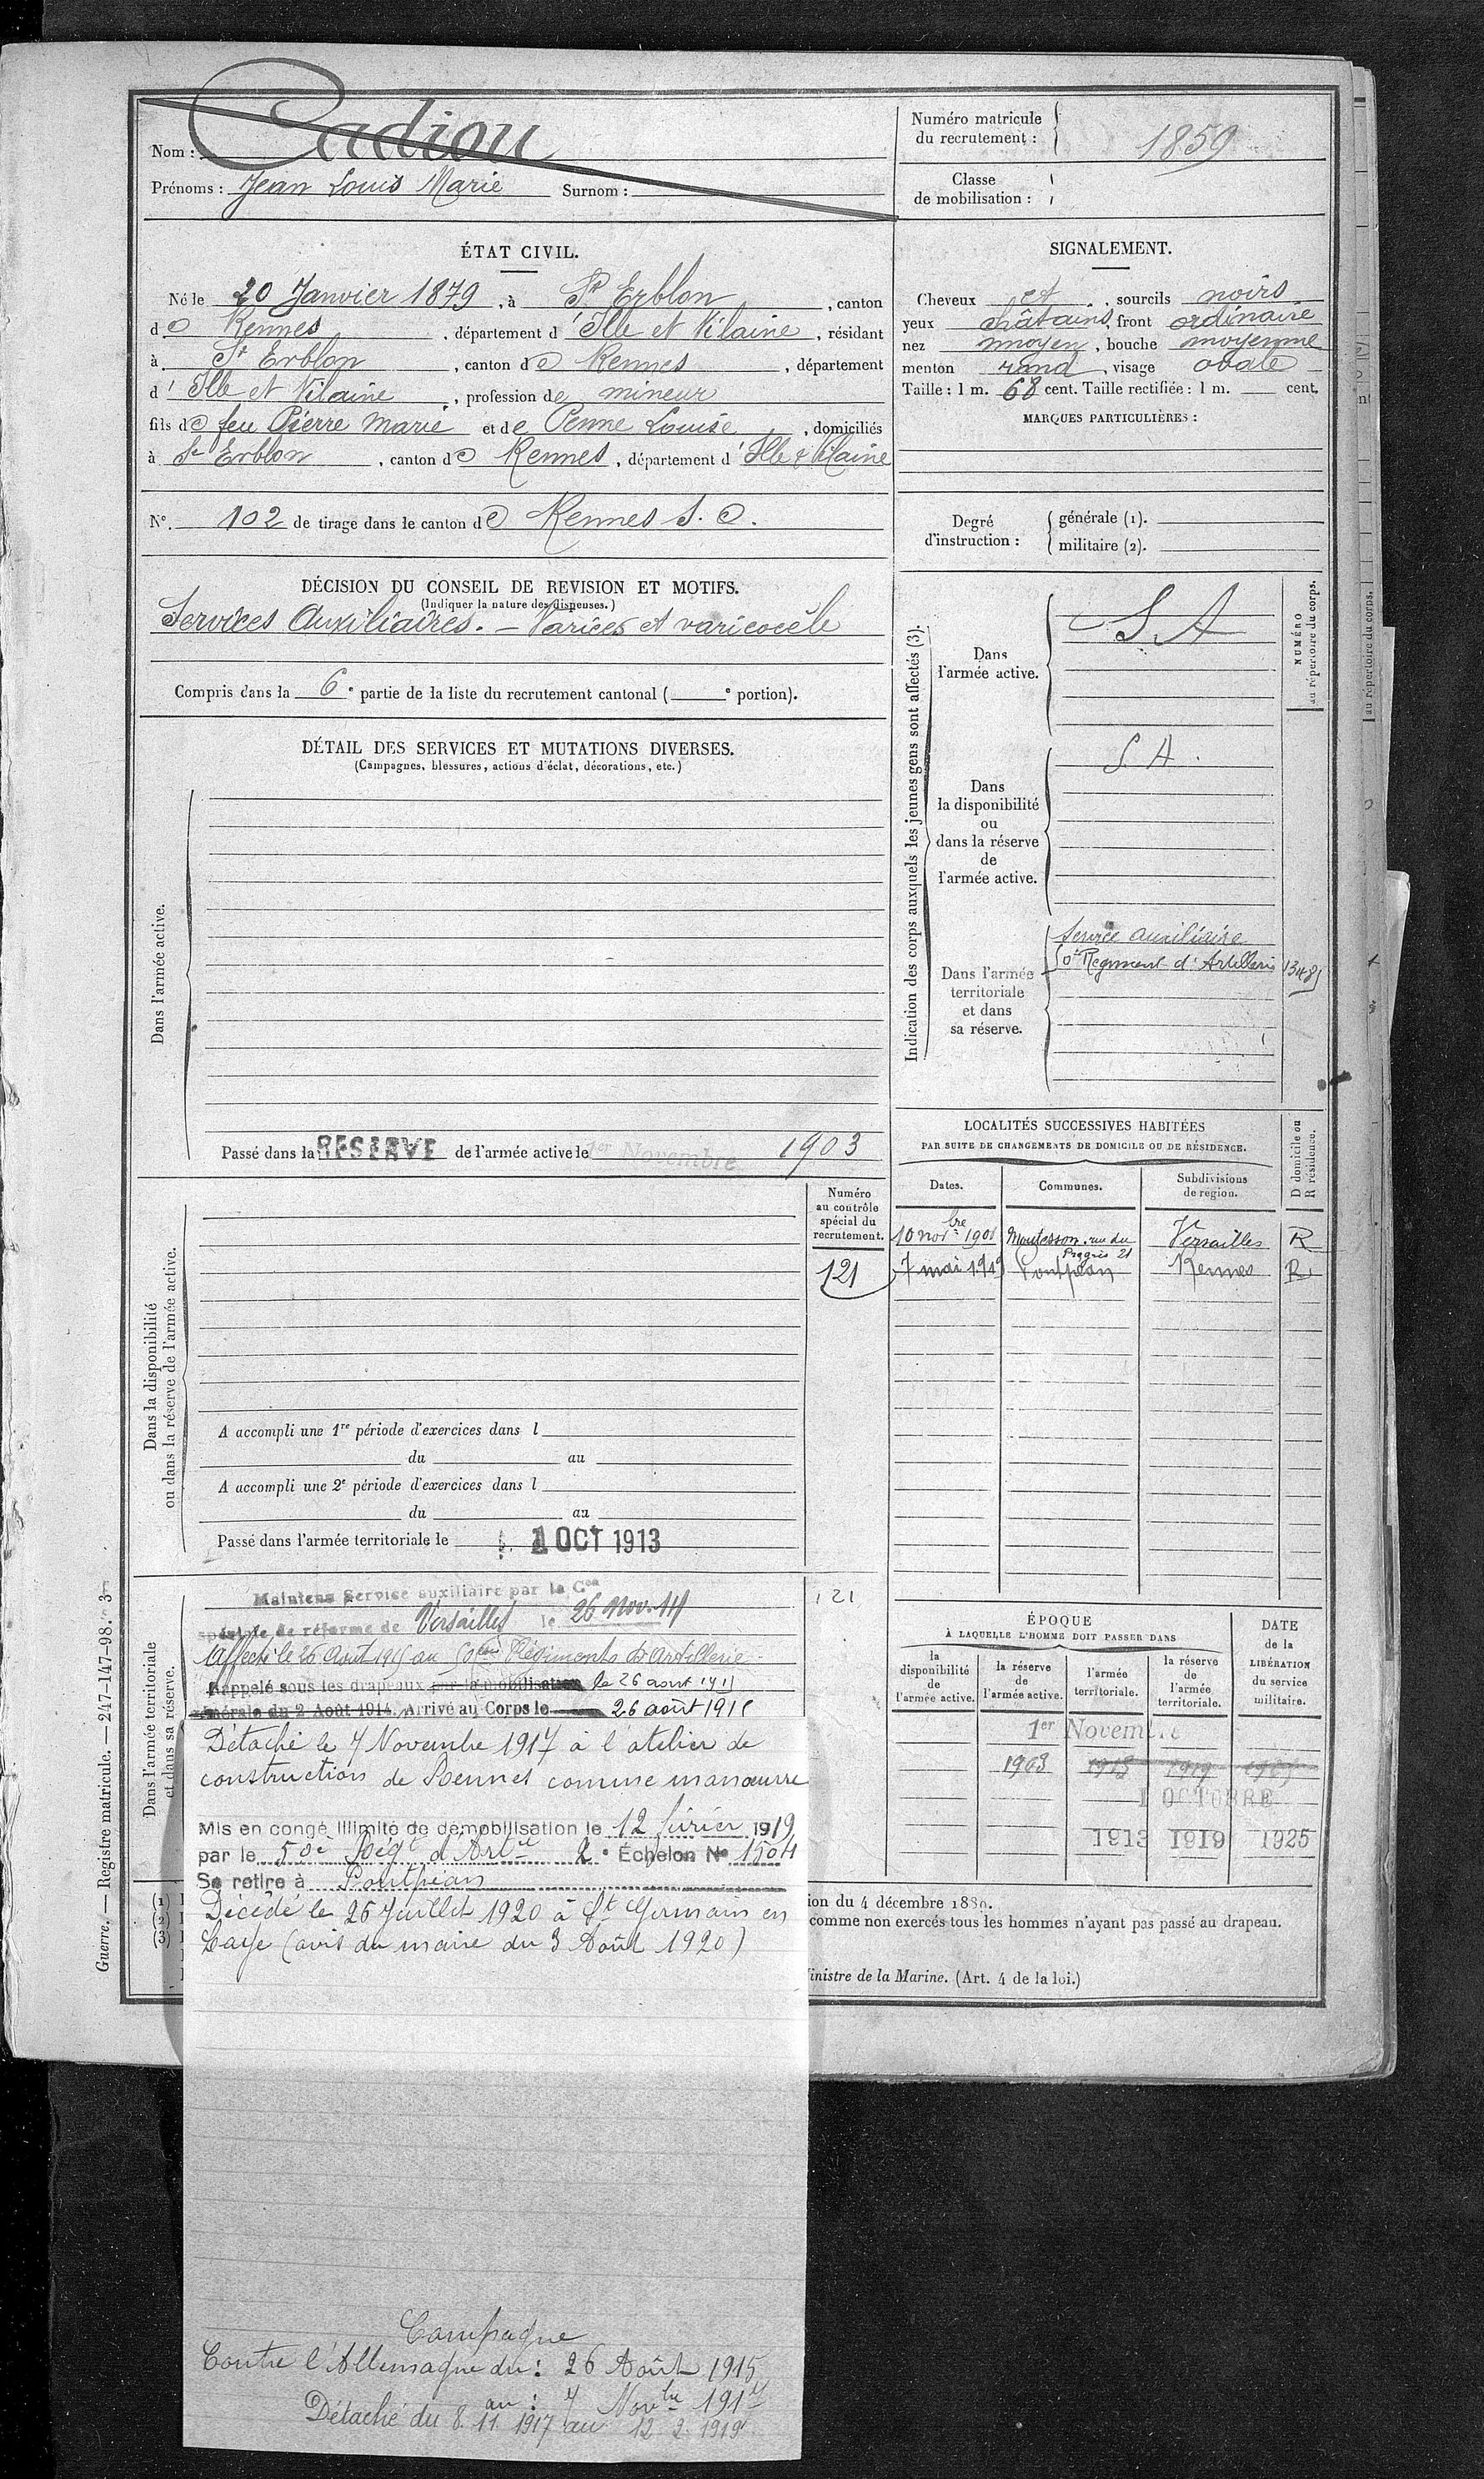 Nom : Cadiou
Prénoms : Jean Louis Marie Surnom :
Numéro matricule du recrutement : 1859
Classe de mobilisation :
ÉTAT CIVIL.
Né le 20 Janvier 1879, à St Erblon, canton
de Rennes, département d'Ille et Vilaine, résidant
à St Erblon, canton de Rennes, département
d'Ille et Vilaine, profession de mineur
fils de feu Pierre Marie et de Penne Louise, domiciliés
à St Erblon, canton de Rennes, département d'Ille & Vilaine
N° 102 de tirage dans le canton de Rennes S. O.
SIGNALEMENT.
Cheveux et, sourcils noirs
yeux châtains, front ordinaire
nez moyen, bouche moyenne
menton rond, visage ovale
Taille : 1 m. 68 cent. Taille rectifiée : 1 m. cent.
MARQUES PARTICULIÈRES :
Degré d'instruction : générale (1).
militaire (2).
DÉCISION DU CONSEIL DE REVISION ET MOTIFS.
(Indiquer la nature des dispenses.)
Services Auxiliaires. — Varices et varicocèle
Compris dans la 6e partie de la liste du recrutement cantonal ( e portion).
DÉTAIL DES SERVICES ET MUTATIONS DIVERSES.
(Campagnes, blessures, actions d'éclat, décorations, etc.)
Dans l'armée active.
Passé dans la RESERVE de l'armée active le 1er Novembre 1903
Indication des corps auxquels les jeunes gens sont affectés (3).
NUMÉRO
au répertoire du corps.
Dans
l'armée active.
S A
Dans
la disponibilité
ou
dans la réserve
de
l'armée active.
S A.
Dans l'armée
territoriale
et dans
sa réserve.
Service auxiliaire
50e Régiment d'Artillerie
LOCALITÉS SUCCESSIVES HABITÉES
PAR SUITE DE CHANGEMENTS DE DOMICILE OU DE RÉSIDENCE.
Dates. Communes. Subdivisions de region. D domicile ou R résidence.
10 novbre 1901 Montesson. rue du Progrès 21 Versailles R
7 mai 1919 Pontpéan Rennes R
Numéro
au contrôle
spécial du
recrutement.
121
Dans la disponibilité
ou dans la réserve de l'armée active.
A accompli une 1re période d'exercices dans l
du au
A accompli une 2e période d'exercices dans l
du au
Passé dans l'armée territoriale le 1 OCT 1913
Dans l'armée territoriale
et dans sa réserve.
Maintenu Service auxiliaire par la Con
spéciale de réforme de Versailles le 26 Nov. 14
121
Affecté le 26 Août 1915 au 50ème Régiments d'Artillerie
Rappelé sous les drapeaux par la mobilisation le 26 août 1915
générale du 2 Août 1914. Arrivé au Corps le 26 août 1915
Détaché le 7 Novembre 1917 à l'atelier de
construction de Rennes comme manœuvre
Mis en congé illimité de démobilisation le 12 février 1919
par le 50e Régt d'Artie 2e Échelon N° 1504
Se retire à Pontpéan
Décédé le 26 Juillet 1920 à St Germain en
Laye (avis du maire du 3 Août 1920)
ÉPOQUE
À LAQUELLE L'HOMME DOIT PASSER DANS
la disponibilité de l'armée active.
la réserve de l'armée active.
l'armée territoriale.
la réserve de l'armée territoriale.
DATE de la LIBÉRATION du service militaire.
1er Novembre
1903 1913 1919
1 OCTOBRE
1913 1919 1925
(1)
(2)
(3)
ion du 4 décembre 1889.
comme non exercés tous les hommes n'ayant pas passé au drapeau.
inistre de la Marine. (Art. 4 de la loi.)
Guerre. — Registre matricule. — 247-147-98. 3
Campagne
Contre l'Allemagne du : 26 Août 1915
au : 7 Novbre 1917
Détaché du 8. 11. 1917 au 12 2. 1919